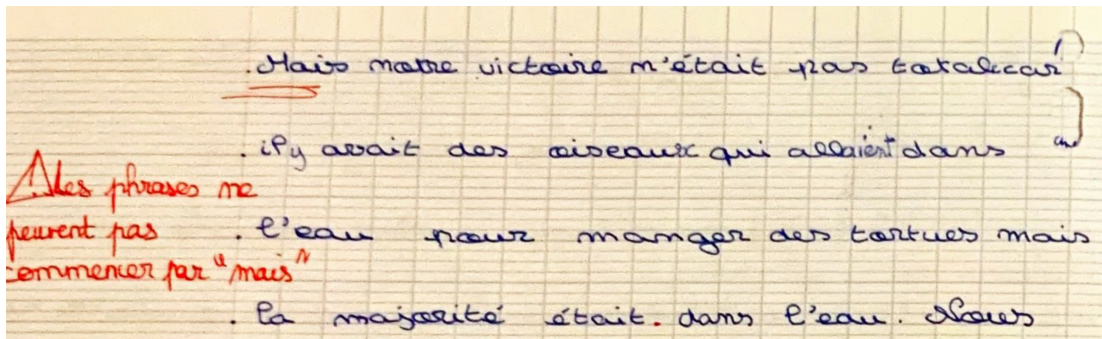 Mais notre victoire n'était pas totale car
il y avait des oiseaux qui allaient dans
l'eau pour manger des tortues mais
la majorité était dans l'eau. Nous
⚠ Les phrases ne
peuvent pas
commencer par "mais"